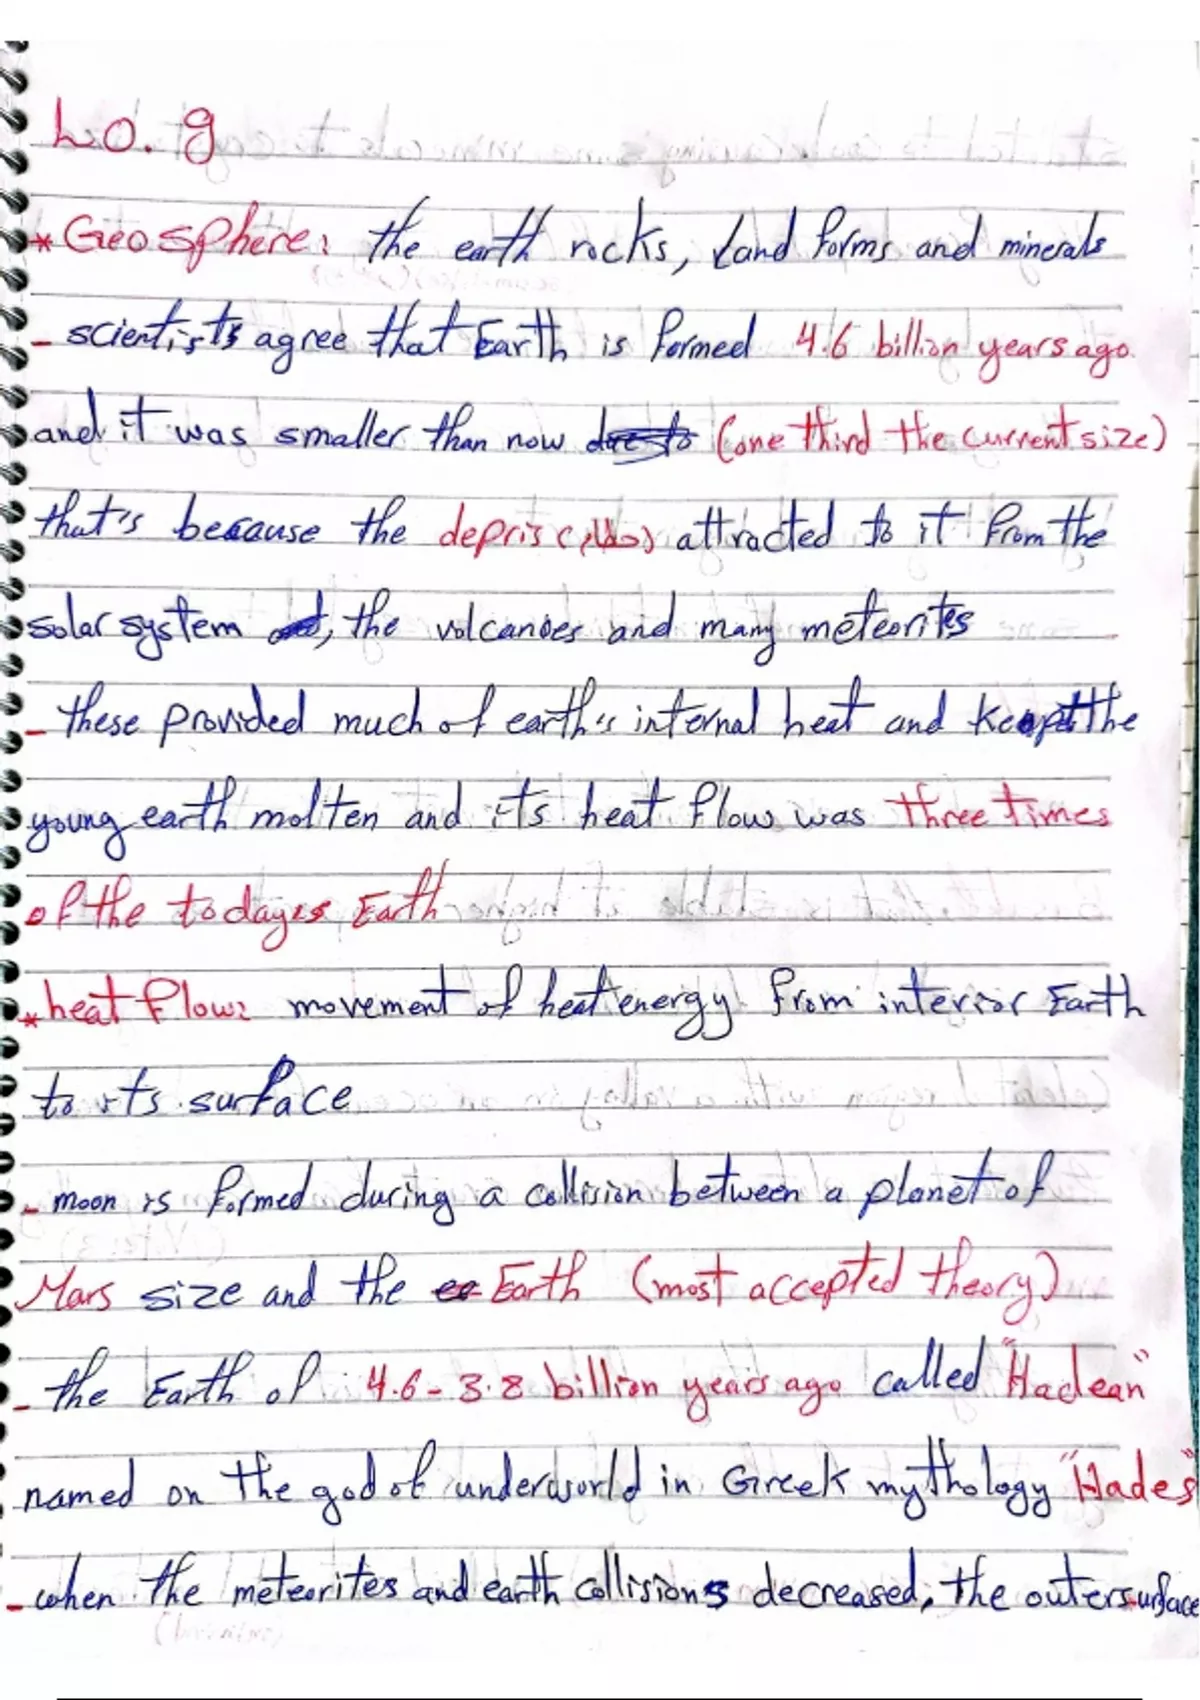 Lo. g
* Geosphere: the earth rocks, Land forms and minerals
- scientists agree that Earth is formed 4.6 billion years ago
and it was smaller than now (one third the current size)
that's because the depris attracted to it from the
solar system, the volcanoes and many meteorites
- these provided much of earth's internal heat and kept the
young earth molten and its heat flow was three times
of the todayes Earth
* heat flow: movement of heat energy from interior Earth
to its surface
- moon is formed during a collision between a planet of
Mars size and the Earth (most accepted theory)
- the Earth of 4.6 - 3.8 billion years ago called "Hadean"
named on the god of underworld in Greek mythology "Hades"
- when the meteorites and earth collisions decreased, the outer surface